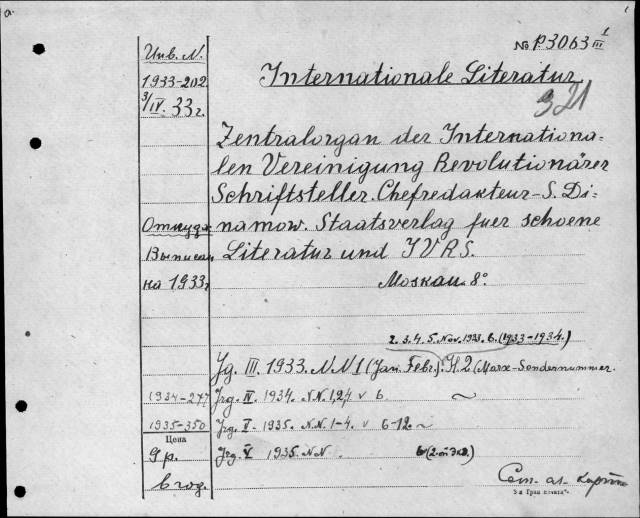 a.
№ P3063 I/III
Internationale Literatur
321
Zentralorgan der Internationa-
len Vereinigung Revolutionärer
Schriftsteller. Chefredakteur-S. Di-
namow. Staatsverlag fuer schoene
Literatur und IVRS.
Moskau. 8°
2. 3. 4. 5. Nov. 1933. 6. (1933-1934.)
Jg. III. 1933. N.N 1 (Jan. Febr.). H. 2 (Marx-Sondernummer.
Jrg. IV. 1934. N.N. 1,2,4 v 6 ~
Jrg. V. 1935. N.N. 1-4. v 6-12. ~
Jrg. V 1935. N.N. 6 (2-ой экз.)
Инв. N.
1933-202
3/IV. 33 г.
Откуда
Выписан
на 1933 г
1934-277
1935-350
Цена
9 р.
в год.
См. ал.